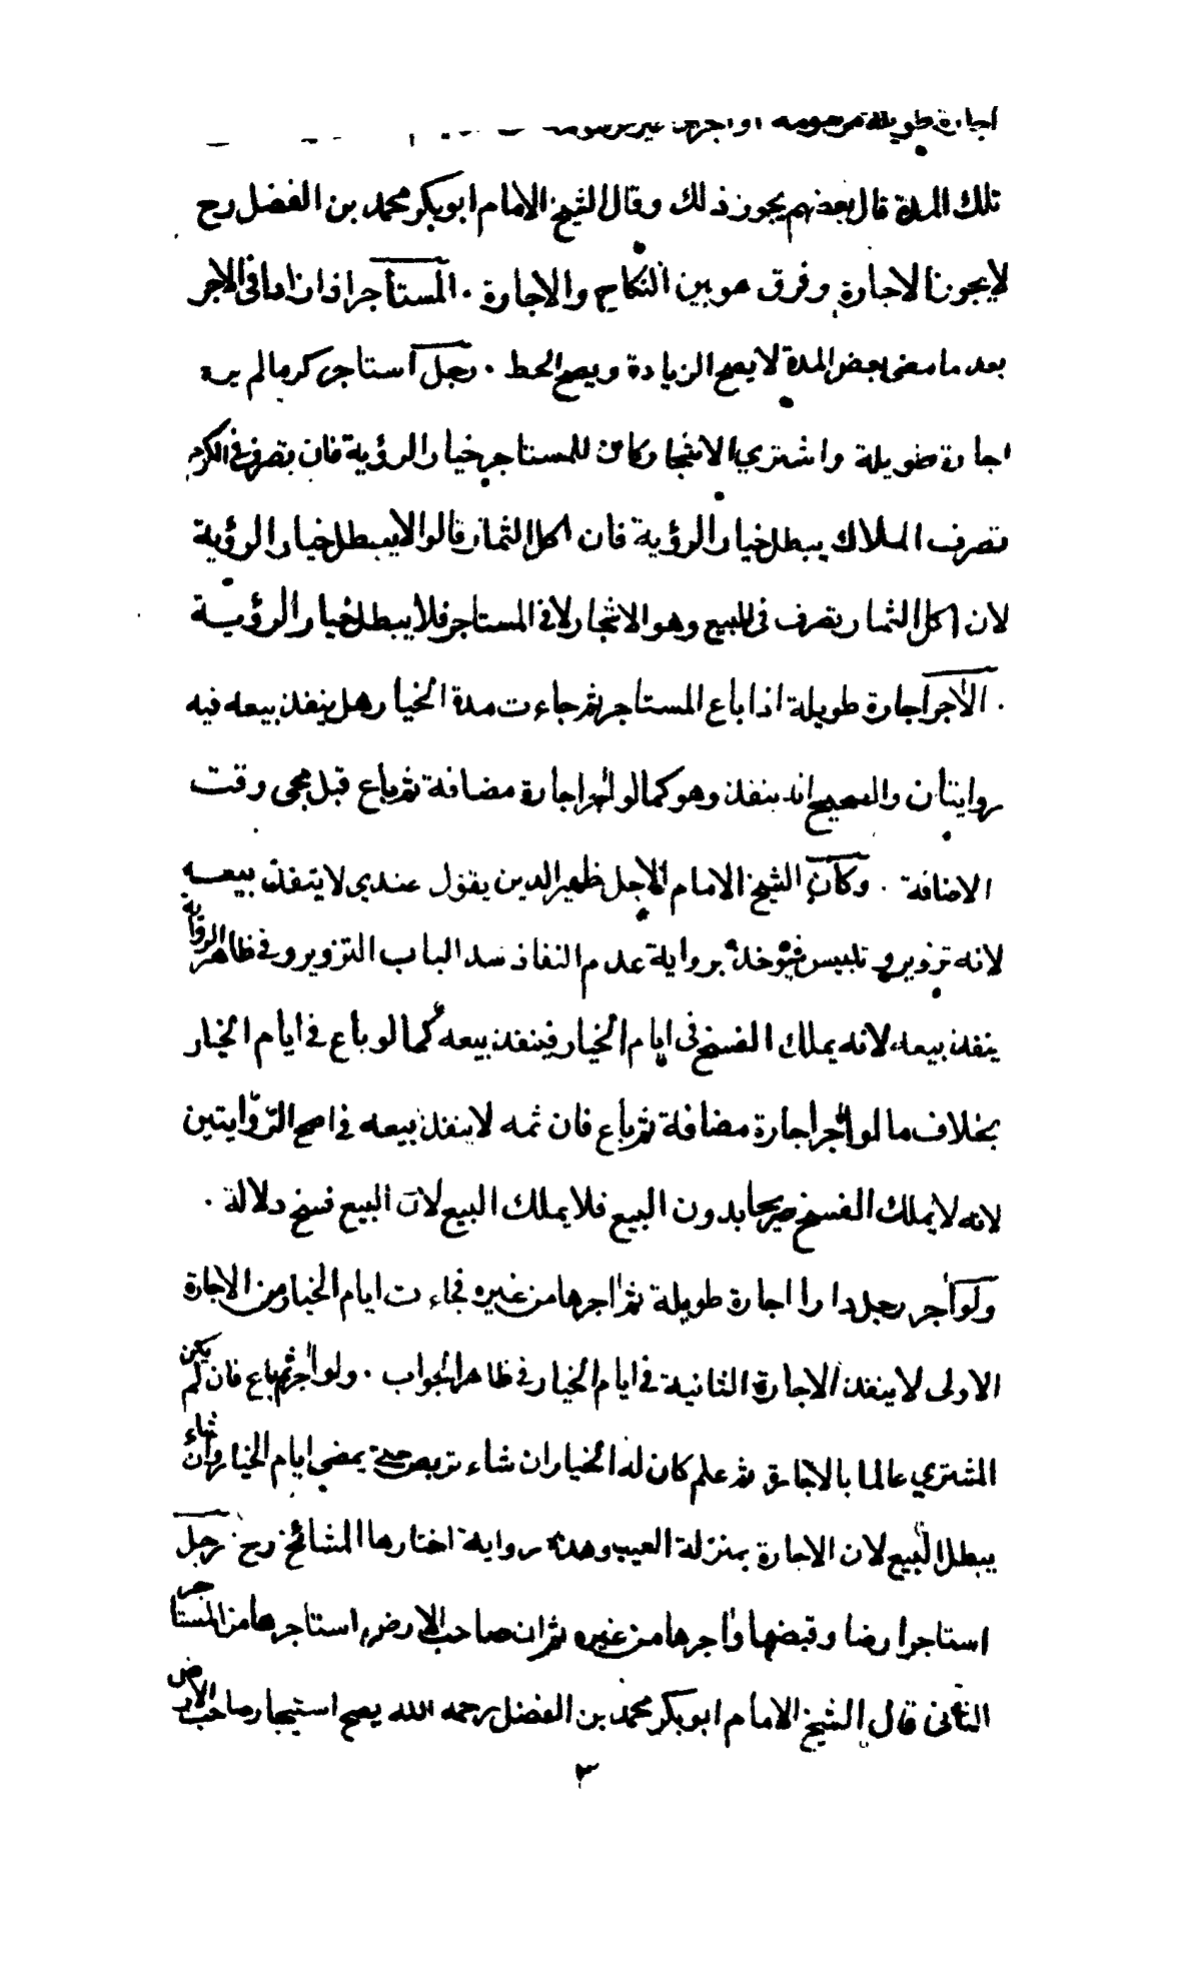 اجارة طويلة مرسومة او اجرها غير مرسومة
تلك المدة قال بعضهم يجوز ذلك وقال الشيخ الامام ابو بكر محمد بن الفضل رح
لا يجوز الاجارة وفرق هو بين النكاح والاجارة . المستأجر اذا زاد في الاجر
بعد ما مضى بعض المدة لا يصح الزيادة ويصح الحط . رجل استاجر كرما لم يره
اجارة طويلة واشتري الاشجار كان للمستاجر خيار الرؤية فان تصرف في الكرم
تصرف الملاك يبطل خيار الرؤية فان اكل الثمار قالوا لا يبطل خيار الرؤية
لان اكل الثمار تصرف في المبيع وهو الاشجار لا في المستاجر فلا يبطل خيار الرؤية
. الآجر اجارة طويلة اذا باع المستاجر ثم جاءت مدة الخيار هل ينفذ بيعه فيه
روايتان والصحيح انه ينفذ وهو كما لو آجر اجارة مضافة ثم باع قبل مجى وقت
الاضافة . وكان الشيخ الامام الاجل ظهير الدين يقول عندي لا ينفذ بيعه
لانه تزوير و تلبيس فيؤخذ برواية عدم النفاذ سدا لباب التزوير وفي ظاهر الرواية
ينفذ بيعه لانه يملك الفسخ في ايام الخيار فينفذ بيعه كما لو باع في ايام الخيار
بخلاف ما لو آجر اجارة مضافة ثم باع فان ثمه لا ينفذ بيعه في اصح الروايتين
لانه لا يملك الفسخ صريحا بدون البيع فلا يملك البيع لان البيع فسخ دلالة .
ولو آجر رجل دارا اجارة طويلة ثم اجرها من غيره فجاءت ايام الخيار من الاجارة
الاولى لا ينفذ الاجارة الثانية في ايام الخيار في ظاهر الجواب . ولو آجر ثم باع فان لم يكن
المشتري عالما بالاجارة ثم علم كان له الخيار ان شاء تربص حتى يمضى ايام الخيار وان شاء
يبطل البيع لان الاجارة بمنزلة العيب وهذه رواية اختارها المشائخ رح . رجل
استاجر ارضا وقبضها وآجرها من غيره ثم ان صاحب الارض استاجرها من المستاجر
الثاني قال الشيخ الامام ابو بكر محمد بن الفضل رحمه الله يصح استيجار صاحب الارض
٣